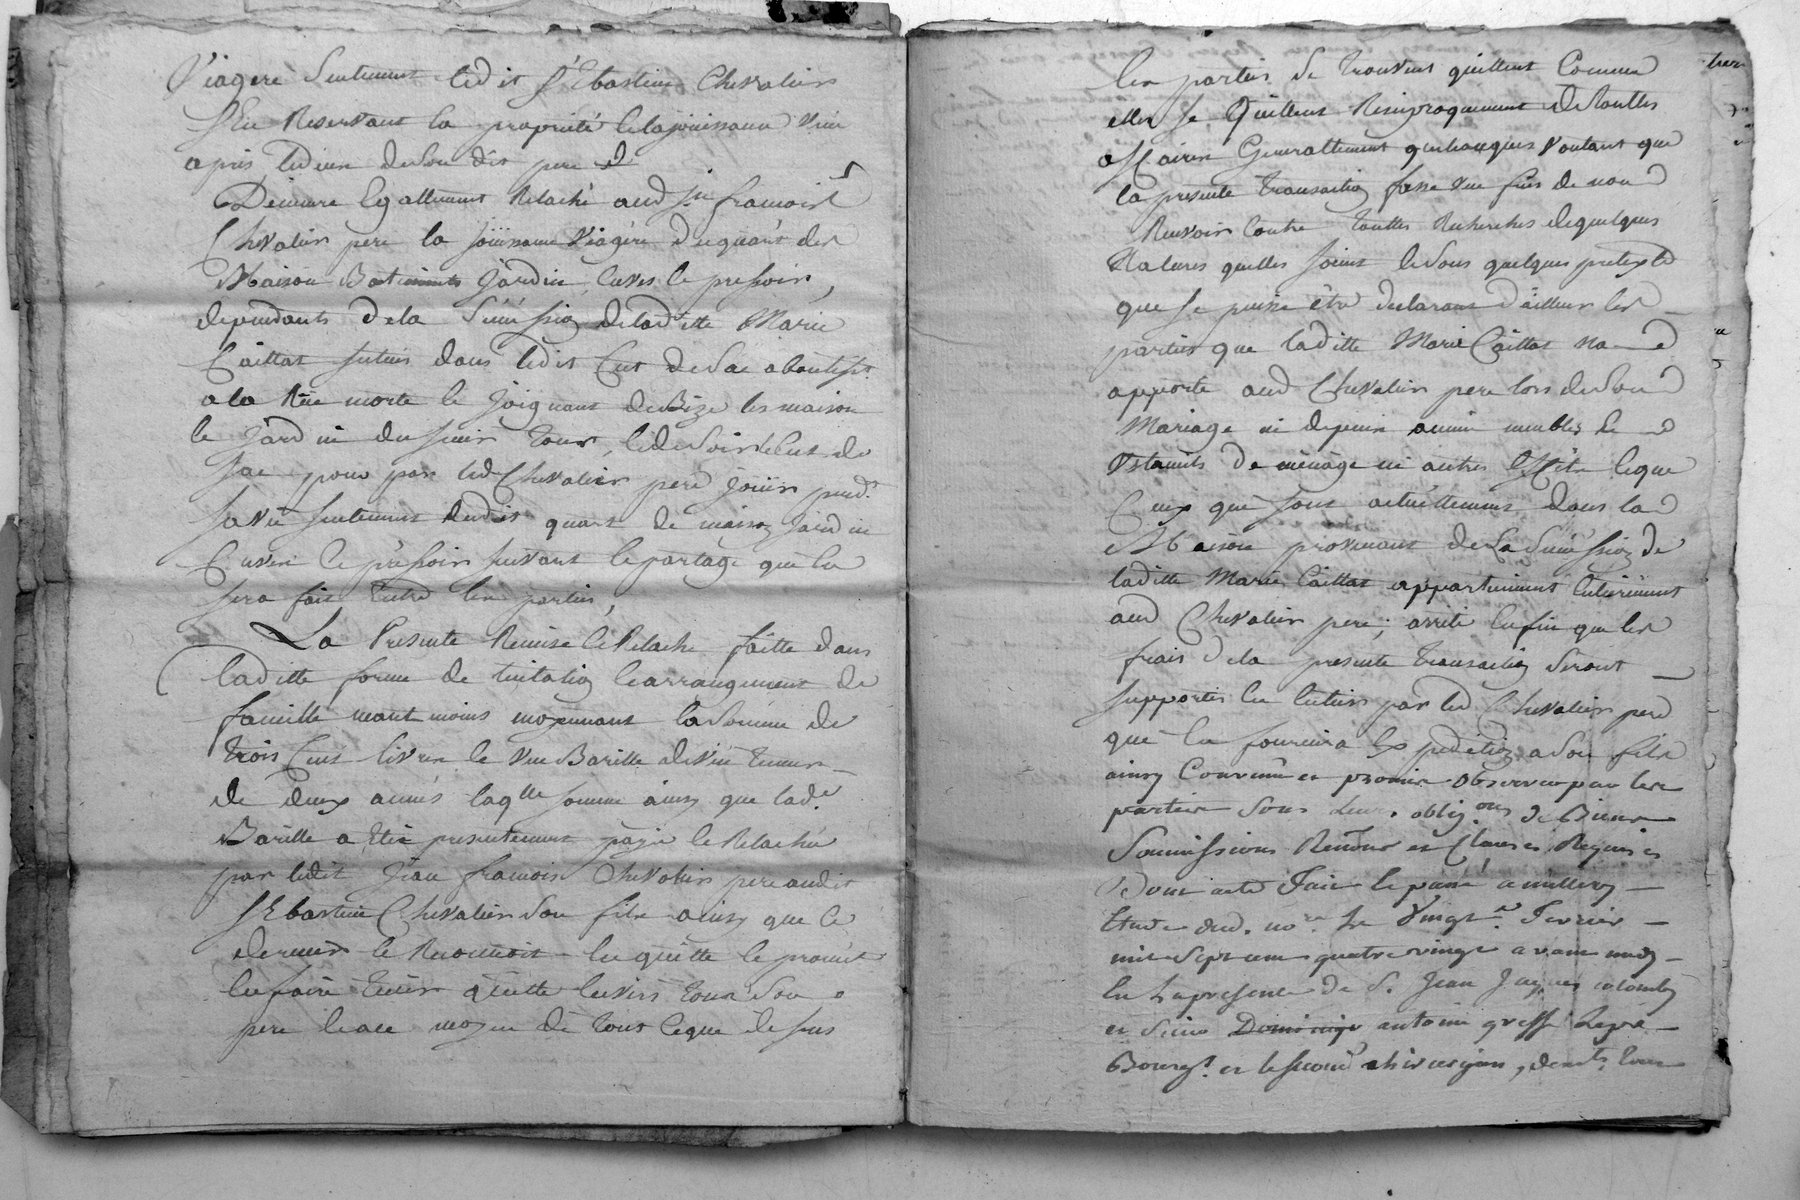 Viagere Seulement ledit Sebastien Chevalier
S'En Reservant la propriété & la jouissance
apres le deces de Son dit pere
Demeure Egallement Relaché aud. Sr Jean francois
Chevalier pere la joüissance Viagere du quart des
Maison Batiments Jardin Cuves & pressoir,
dependants de la Succession de laditte Marie
Caillat Scitués dans ledit Cut de Sac aboutiss.t
a la Rüe morte & Joignant de Bize les maison
& Jardin du Sieur Tour, & de Soir le Cut de
Sac pour par led. Chevalier pere joüir pend.t
Sa vie Seulement dudit quart de maison Jardin
Cuves & pressoir suivant le partage que En
Sera fait Entre les parties,
La Presente Remise & Relache faitte dans
laditte forme de & arrangement de
famille neant moins moyennant la Somme de
Trois Cens livres & Une Barille de vin
de deux annés laqlle somme ainsy que lad.e
Barille a Eté presentement payée & Relachée
par ledit Jean francois Chevalier pere audit
Sebastien Chevalier Son fils ainsy que ce
dernier le Reconnoit En quitte & promet
En faire tenir quitte Envers tous Son
pere & au moyen de tout ce que dessus
les parties Se Trouvent quittent Comme
elles Se Quittent Reciproquement de Toutes
affaires Generallement quelconques Voulant que
la presente Transaction fasse une fins de non
Recevoir Contre Touttes Recherches de quelques
Natures quelles soient & Sous quelques pretexte
que Se puisse être declarant d'ailleurs les
parties que laditte Marie Caillat na
apporté aud Chevalier pere lors de Son
Mariage ni depuis aucun meubles &
Ustancils de ménage ni autres Effets & que
Ceux qui Sont actuellement dans la
Maison provenant de la Succession de
laditte Marie Caillat appartiennent Entierement
aud Chevalier pere; arrêté Enfin que les
frais de la presente Transaction Seront
Supportés En Entier par led Chevalier pere
qui En fournira Expedition a Son fils
ainsy Convenu et promis observer par les
parties Sous Leurs oblig.ons de Biens
Soumissions Renon.s et Clauses Requises
Dont acte Fait & passé a millery
Etude dud. no.re Le Vingt Fevrier
mil Sept cens quatre vingt avant midy
En La presence de S. Jean Jaques colomby
et Sieur Dominique antoine
Bourg.s et le second chirurgien, dem.ts tous